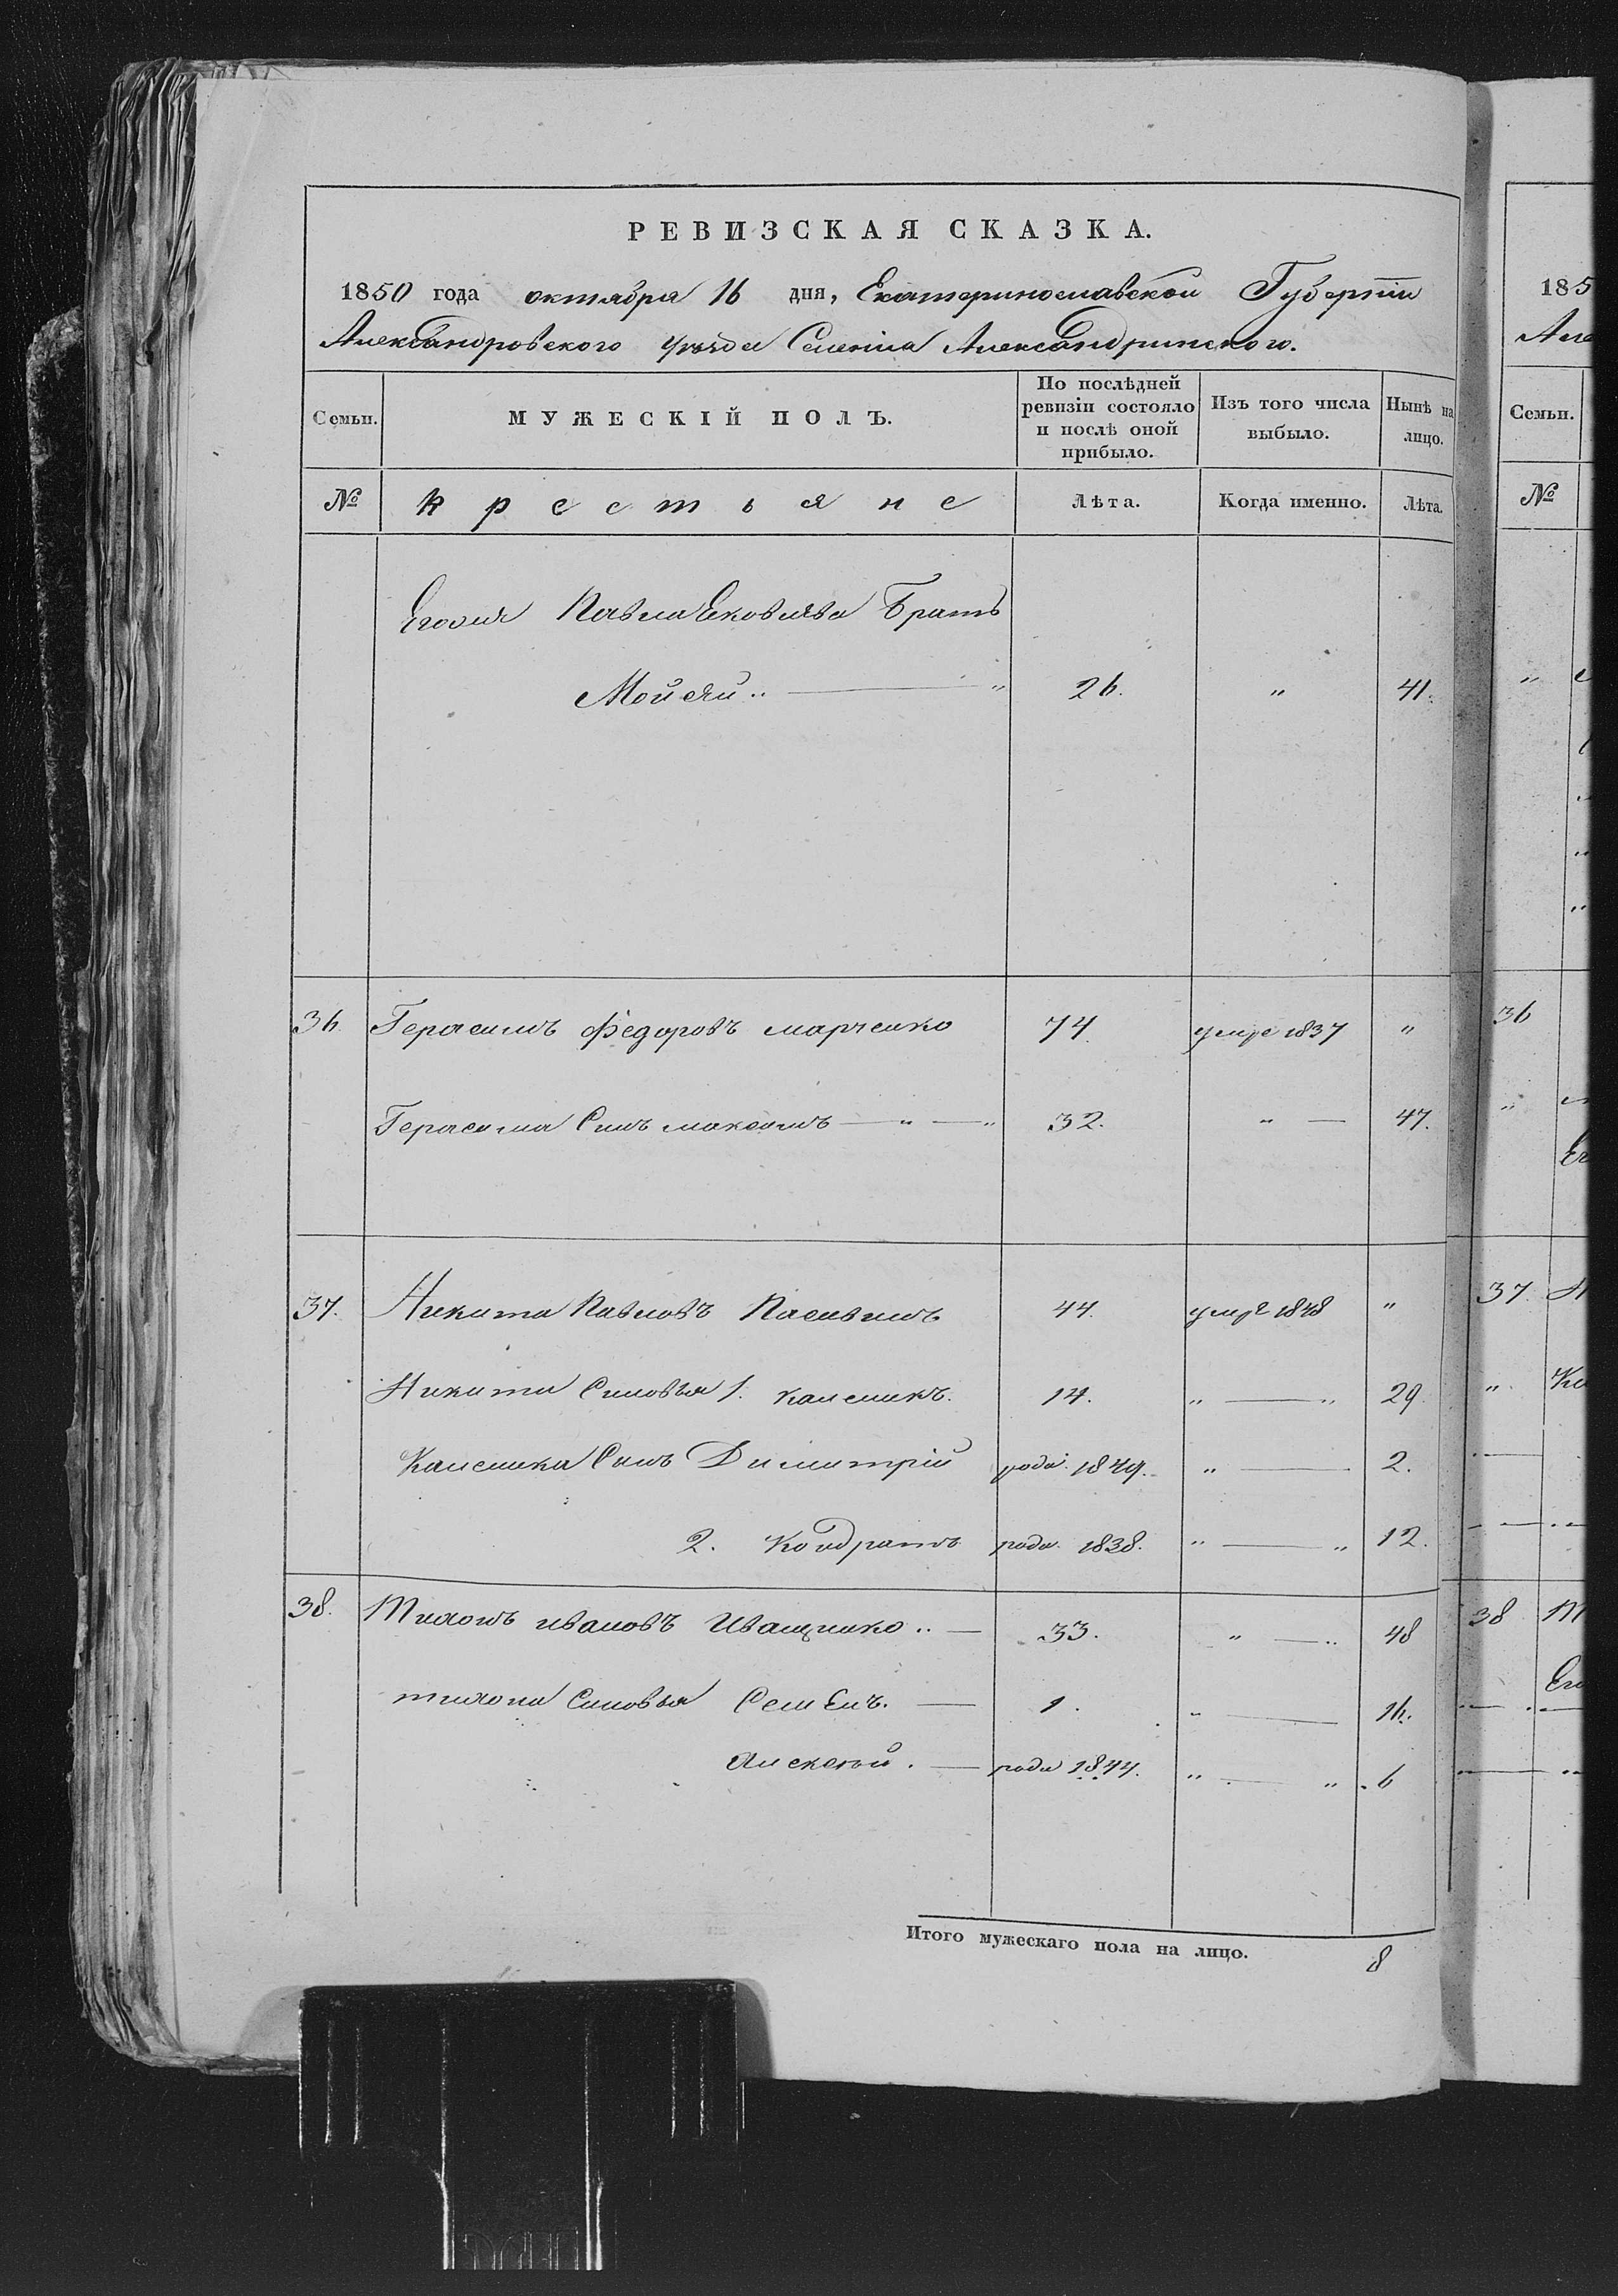 РЕВИЗСКАЯ СКАЗКА.
1850 года октября 16 дня, Екатеринославской Губернiи
Александровского Уѣзда Селенiя Александринского.
Семьи. МУЖЕСКІЙ ПОЛЪ. По послѣдней ревизіи состояло и послѣ оной прибыло. Изъ того числа выбыло. Нынѣ на лицо.
№ крестьяне Лѣта. Когда именно. Лѣта.
Павла Яковлева Братъ
Мойсѣй " 26. " 41.
36. Герасимъ Федоровъ марченко 74. умре 1837 "
Герасима Синъ максимъ — " — " 32. " — 47.
37. Никита Павловъ 44. умре 1848 "
Никити Синовья 1. Каленикъ. 14. " — " 29.
Каленика Синъ Димитрій роди. 1849. " — 2.
2. Кондратъ роди. 1838. " — " 12.
38. Тихонъ ивановъ Иващенко " — 33. " — " 48
тихона Синовья Семенъ. — 1. " — 16.
Алексѣй. — роди 1844. " — " 6
Итого мужескаго пола на лицо. 8
185
Але
Семьи.
№
"
36
"
37
"
38